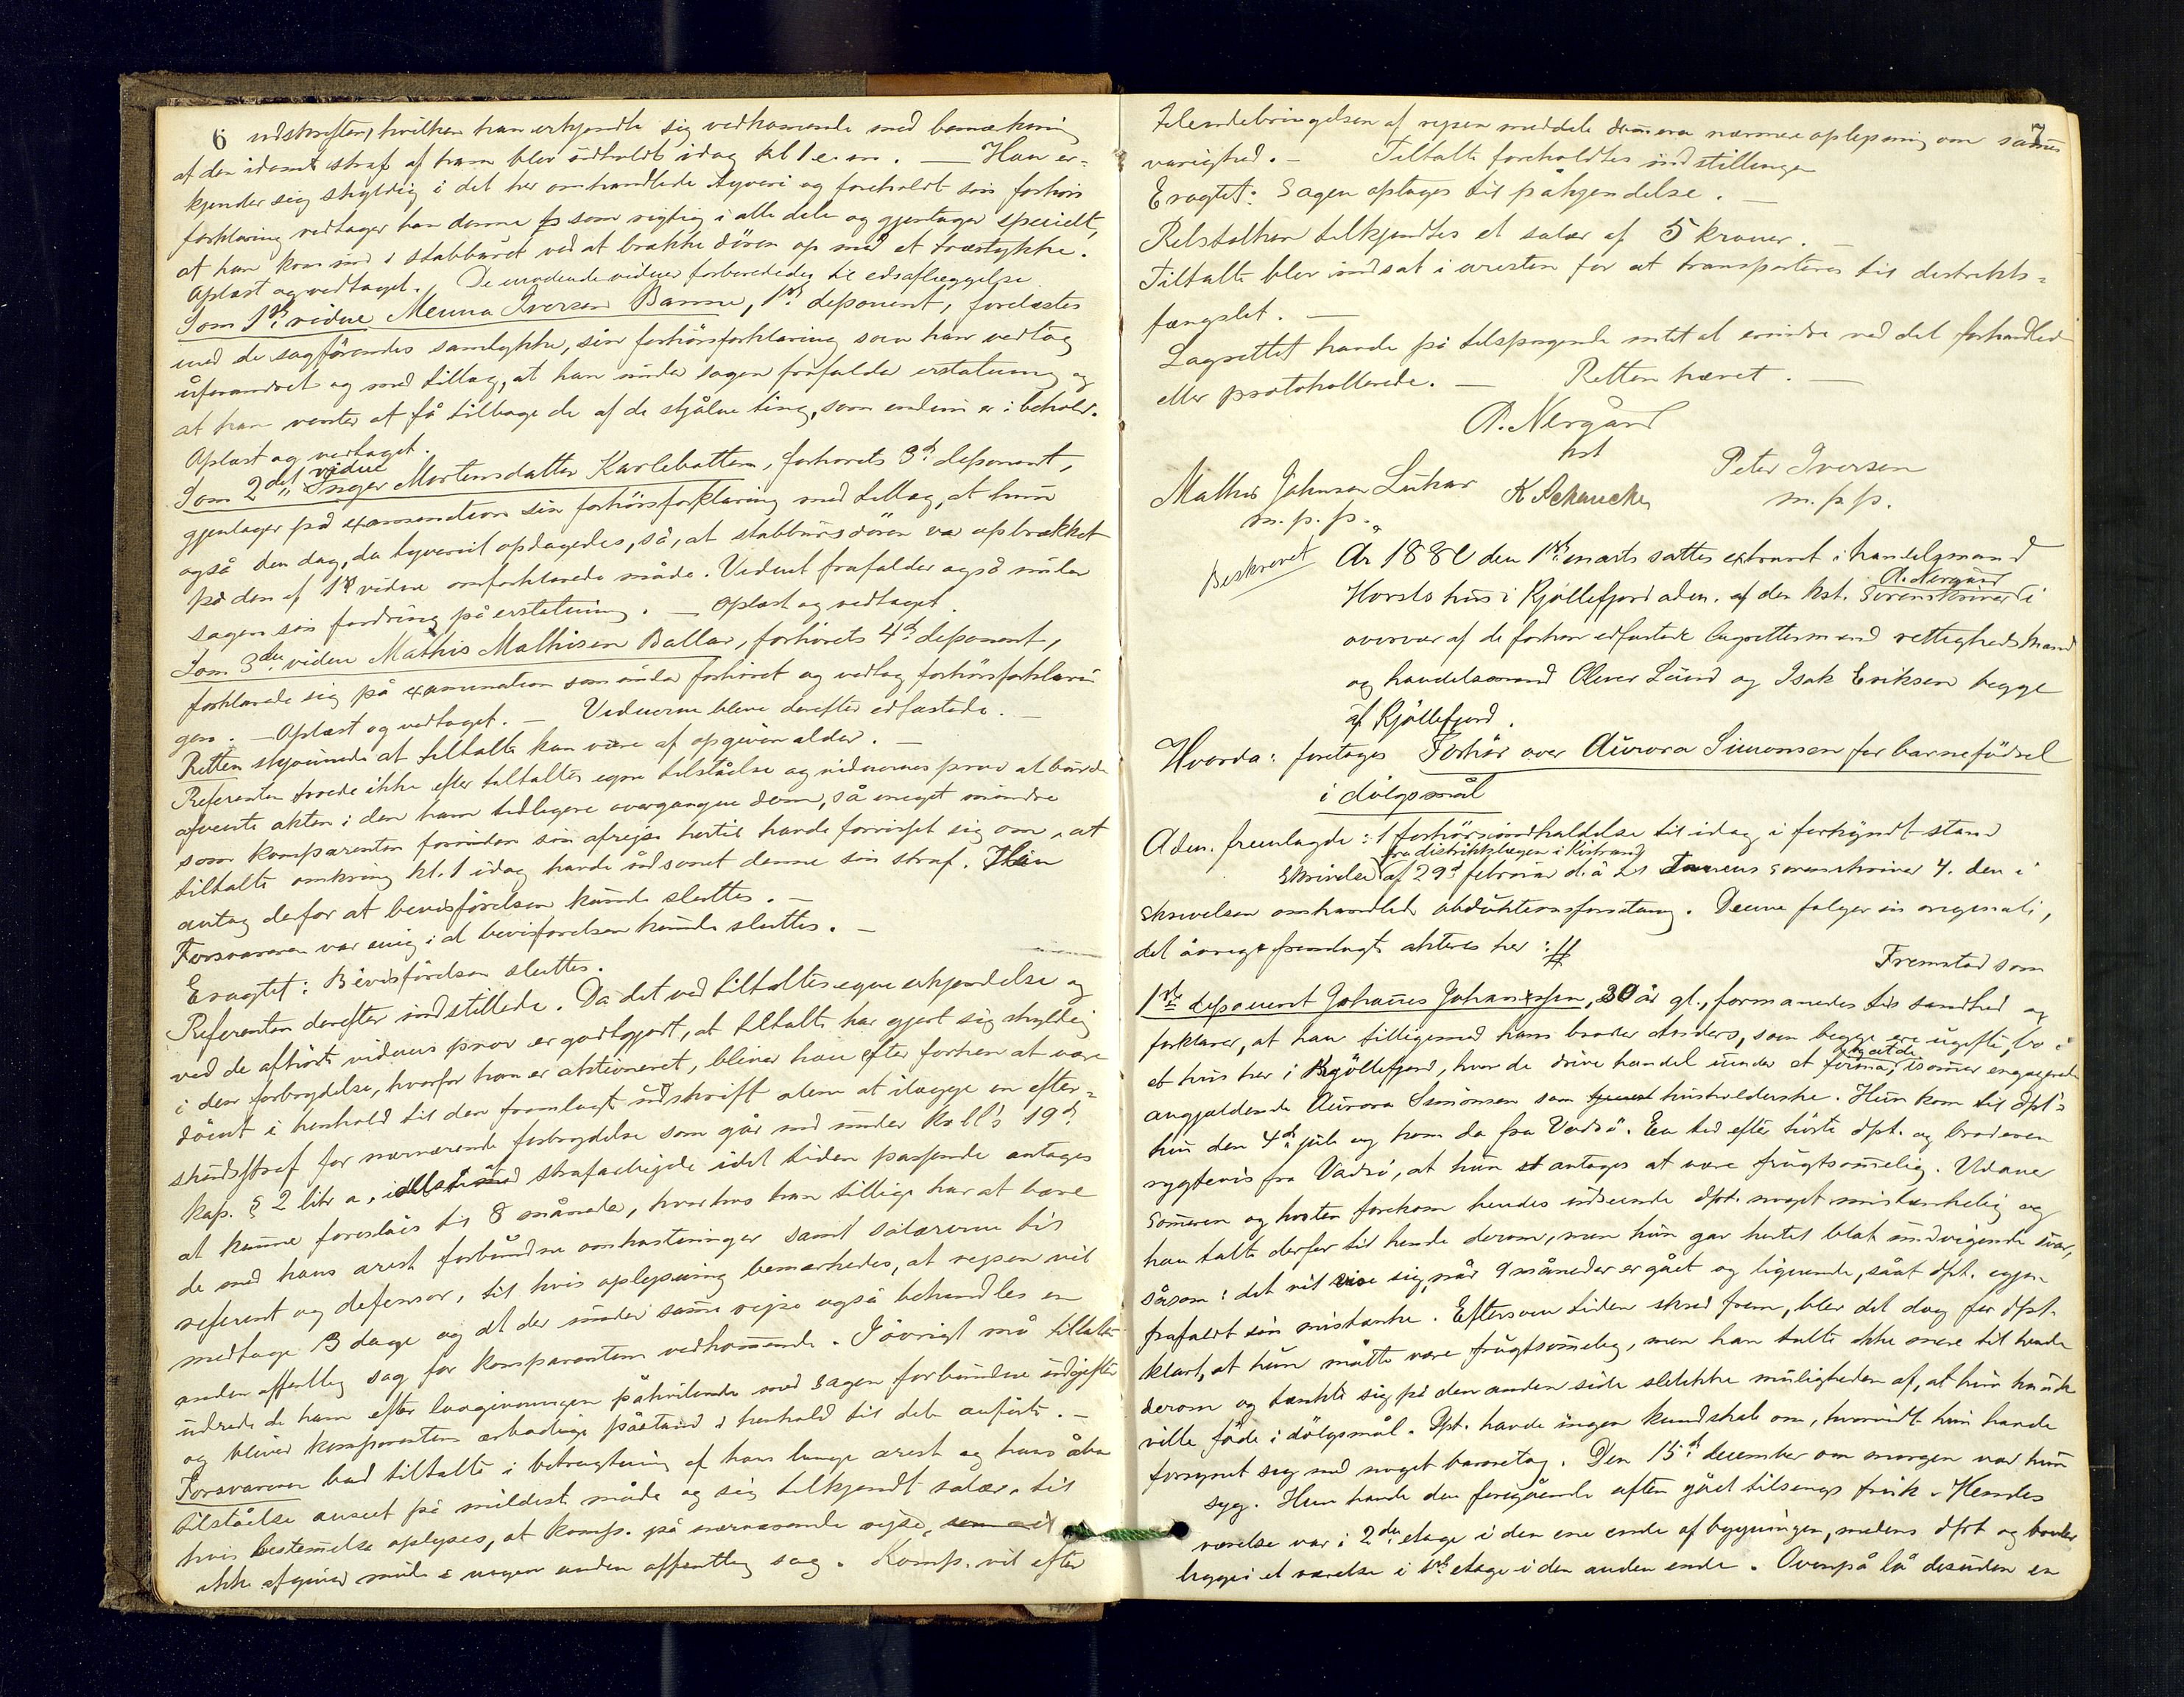 6
udskriften, hvilken han erkjendte sig vedkommende med bemærkning
at den idømte straf af ham blev udholdt idag kl 1 e.m. — Han er-
kjender sig skyldig i det her omhandlede tyveri og foreholdt sin forhørs
forklaring vedtager han denne som rigtig i alle dele og gjentager specielt,
at han kom ind i stabburet ved at brække døren op med et træstykke.
Oplæst og vedtaget. De mødende vidner forberededes til edsaflæggelse
Som 1st vidne Menna Iversen Banne, 1st deponent, forelæstes
med de sagførendes samtykke, sin forhørsforklaring som han vedtog
uforandret og med tillæg, at han under sagen frafalder erstatning og
at han venter at få tilbage de af de stjålne ting, som endnu er i behold.
Oplæst og vedtaget.
Som 2det vidne Inger Mortensdatter Karlebotten, forhørets 3d deponent,
gjentager på examination sin forhørsforklaring med tillæg, at hun
også den dag, da tyveriet opdagedes, så, at stabbursdøren var opbrækket
på den af 1st vidne omforklarede måde. Vidnet frafalder også under
sagen sin fordring på erstatning. — Oplæst og vedtaget.
Som 3die vidne Mathis Mathisen Ballar, forhørets 4d deponent,
forklarede sig på examination som under forhøret og vedtog forhørsforklarin
gen. — Oplæst og vedtaget. — Vidnerne bleve derefter edfæstede. —
Retten skjønnede at tiltalte kan være af opgiven alder. —
Referenten troede ikke efter tiltaltes egen tilståelse og vidnernes prov at burde
afvente akten i den ham tidligere overgangne dom, så meget mindre
som komparenten forinden sin afrejse hertil havde forvisset sig om, at
tiltalte omkring kl. 1 idag havde udsonet denne sin straf. Han
antog derfor at bevisførelsen kunde sluttes. —
Forsvareren var enig i at bevisførelsen kunde sluttes. —
Eragtet: Bevisførelsen sluttes.
Referenten derefter indstillede. Da det ved tiltaltes egen erkjendelse og
ved de afhørte vidners prov er godtgjort, at tiltalte har gjort sig skyldig
i den forbrydelse, hvorfor han er aktioneret, bliver han efter forhen at være
dømt i henhold til den fremlagte udskrift alene at ilægge en efter-
skudsstraf for nærværende forbrydelse som går ind under krl.s 19d
kap. § 2 litr a, strafarbejde idet tiden passende antages
at kunne foreslåes til 8 måneder, hvorhos han tillige har at bære
de med hans arest forbundne omkostninger samt salærerne til
referent og defensor, til hvis oplysning bemærkedes, at rejsen vil
medtage 13 dage og at der under samme rejse også behandles en
anden offentlig sag for komparenten vedkommende. I øvrigt må tiltalte
udrede de ham efter lovgivningen påhvilende med sagen forbundne udgifter
og bliver komparentens ærbødige påstand i henhold til det anførte. —
Forsvareren bad tiltalte i betragtning af hans lange arest og hans åbne
tilståelse anseet på mildest måde og sig tilkjendt salær, til
hvis bestemmelse oplyses, at komp. på nærværende rejse, som vil
ikke afgiver møde i nogen anden offentlig sag. Komp. vil efter
7
tilendebringelsen af rejsen meddele dommeren nærmere oplysning om sammes
varighed. — Tiltalte foreholdtes indstillingen
Eragtet: Sagen optages til påkjendelse. —
Retstolken tilkjendtes et salær af 5 kroner. —
Tiltalte blev indsat i aresten for at transporteres til distrikts-
fængslet. —
Lagrettet havde på tilspørgende intet at erindre ved det forhandlede
eller protokollerede. — Retten hævet. —
A. Nergård
kst
Mathis Johnsen Luhar K Schancke Peter Iversen
m.p.p. m.p.p.
Beskrevet År 1880 den 1st marts sattes extraret i handelsmand
A. Nergård
Horsts hus i Kjøllefjord adm. af den kst. sorenskriver i
overvær af de forhen edfæstede lagrettesmænd
og handelsmand Oliver Lund og Isak Eriksen begge
af Kjøllefjord.
Hvorda: foretoges Forhør over Aurora Simonsen for barnefødsel
i dølgsmål
Adm. fremlagde: 1 forhørsindkaldelse til idag i forkyndt stand
fra distriktslægen i Kistrand
Skrivelse af 29d februar d.å til sorenskriver 4. den i
skrivelsen omhandlede obduktionsforretning. Denne følger in originali,
det øvrige fremlagte akteres her: # Fremstod som
1ste deponent Johannes Johannessen, 30 år gl., formanedes til sandhed og
forklarer, at han tilligemed hans broder Anders, som begge ere ugifte, bo i
et hus her i Kjøllefjord, hvor de drive handel under et firma, isommer engageret
angjældende Aurora Simonsen som husholderske. Hun kom til dpt.s
hus den 4d juli og kom da fra Vadsø. En tid efter hørte dpt. og broderen
rygtevis fra Vadsø, at hun antages at være frugtsommelig. Udover
sommeren og høsten forekom hendes udseende dpt. noget mistænkelig og
han talte derfor til hende derom, men hun gav hertil blot undvigende svar,
såsom: det vil vise sig, når 9 måneder er gået og lignende, såat dpt. igjen
frafaldt sin mistanke. Eftersom tiden skred frem, blev det dog for dpt.
klart, at hun måtte være frugtsommelig, men han talte ikke mere til hende
derom og tænkte sig på den anden side slet ikke muligheden af, at hun kunde
ville føde i dølgsmål. Dpt. havde ingen kundskab om, hvorvidt hun havde
forsynet sig med noget barnetøj. Den 15d december om morgen var hun
syg. Hun havde den foregående aften gået tilsengs frisk. Hendes
værelse var i 2den etage i den ene ende af bygningen, medens dpt og broder
ligge i et værelse i 1st etage i den anden ende. Ovenpå lå desuden en